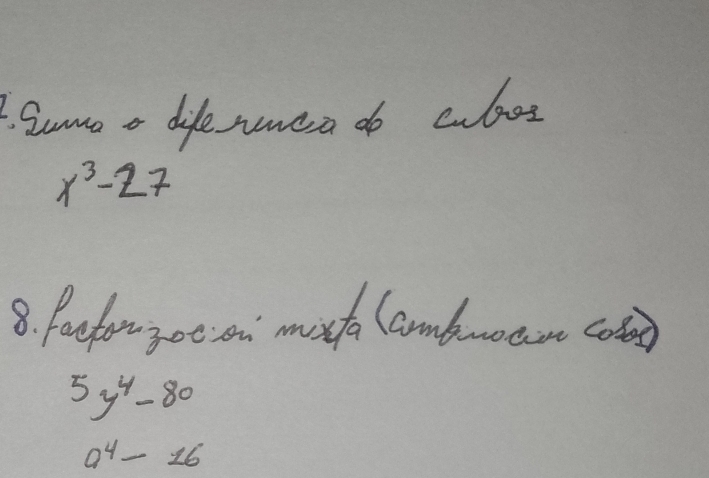 7. Suma o diferencia de cubos
x³-27
8. factorización mixta (combinacion casos)
5y⁴-80
a⁴- 16